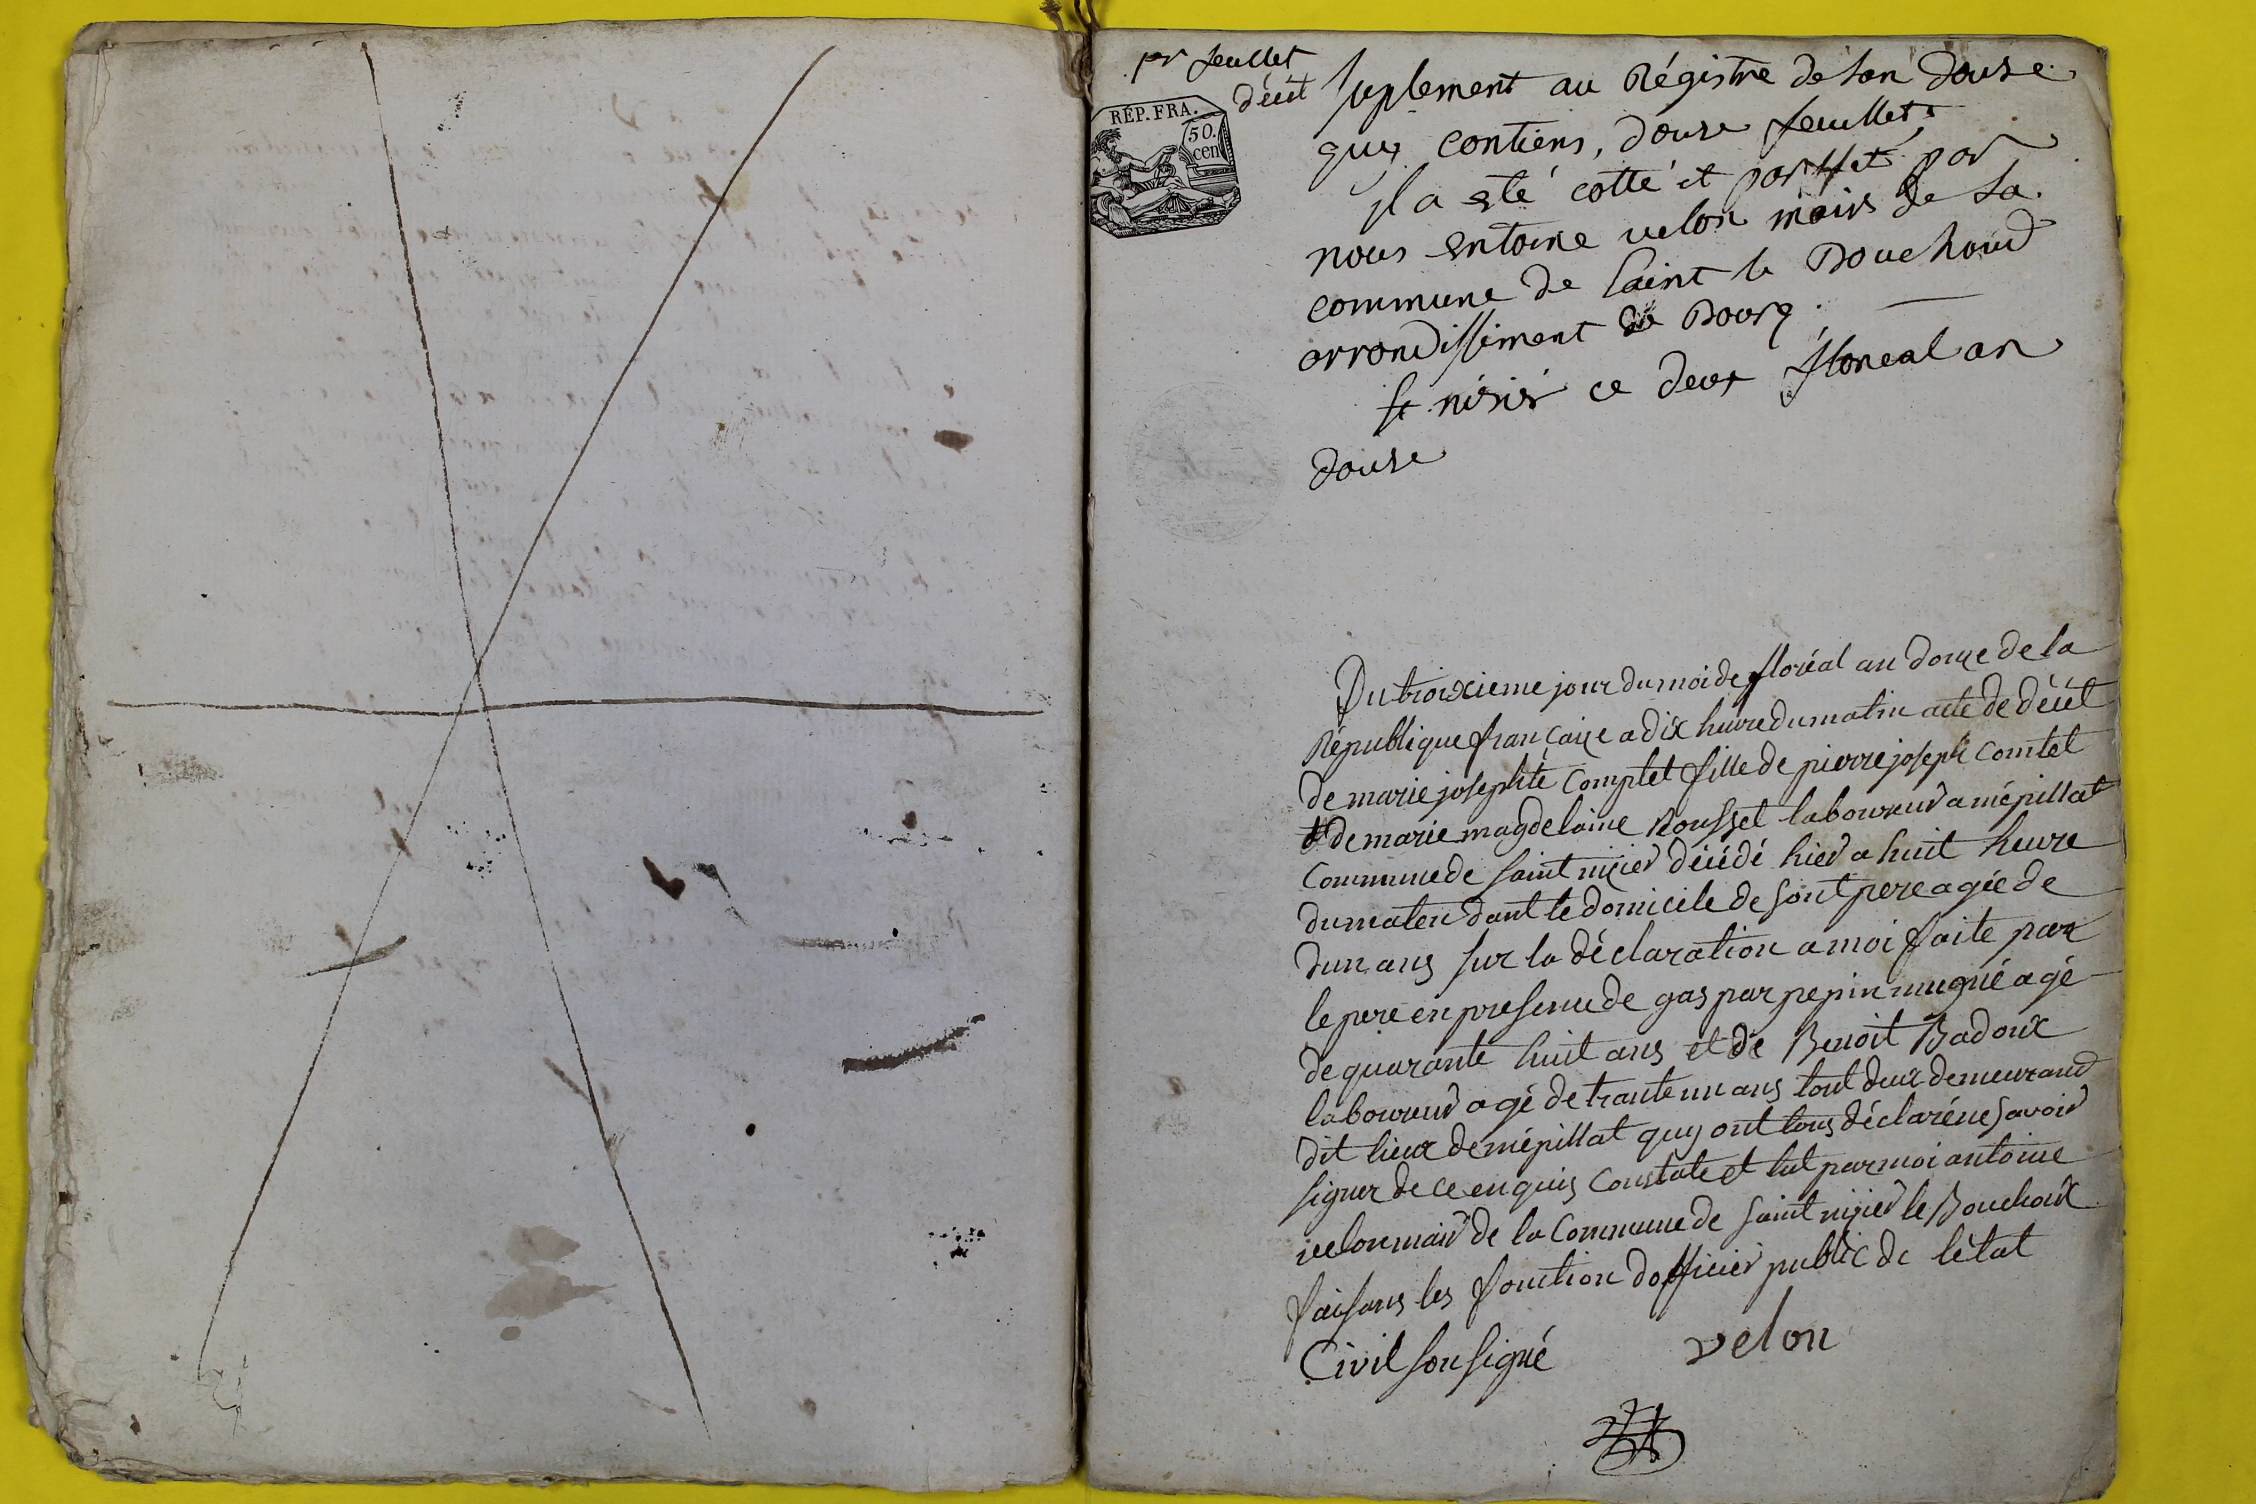 pr feuillet
décét
REP. FRA.
50.
cen
suplement au Régistre de lan douse
quy contiens, douse feuillets
jl a eté cotté et paraffet par
nous entoine velon maire de la
commune de saint le Bouchoud
arrondissiment de Bourg.
st. nisier ce deux floreal an
douse
Du troisxieme jour du moi de floréal an douze de la
République francaize a dix heure du matin acte de décét
de marie josephte Comptet fille de pierre joseph Comtet
et de marie magdelaine Rousset laboureur a mépillat
Commune de saint nizier décédé hier a huit heure
du maten dant le domicile de sont pere agée de
dun ans sur la déclaration a moi faite par
le pere en presence de gaspar pepin mugnié agé
de quarante huit ans et de Benoit Badoux
laboureur agé de trante un ans tout deux demeurand
dit lieux de mépillat quy ont tous déclaré ne savoir
signer de ce enquis Constate et lut par moi antoine
velon mair de la Commune de saint nizier le Bouchoux
faisans les fonction dofficier public de létat
Civil sousigné velon